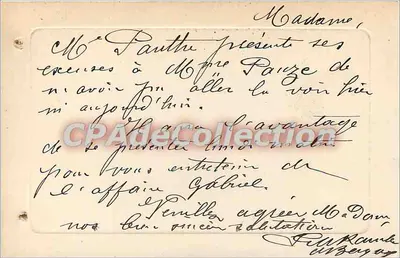 Madame,
Mr Panthe présente ses
excuses à Mme Pauze de
n'avoir pu aller la voir hier
ni aujourd'hui.
Il aura l'avantage
CPAdeCollection.com
de se présenter matin
pour vous entretenir de
l'affaire Gabriel.
Veuillez agréer Madame
nos bien sincères salutations